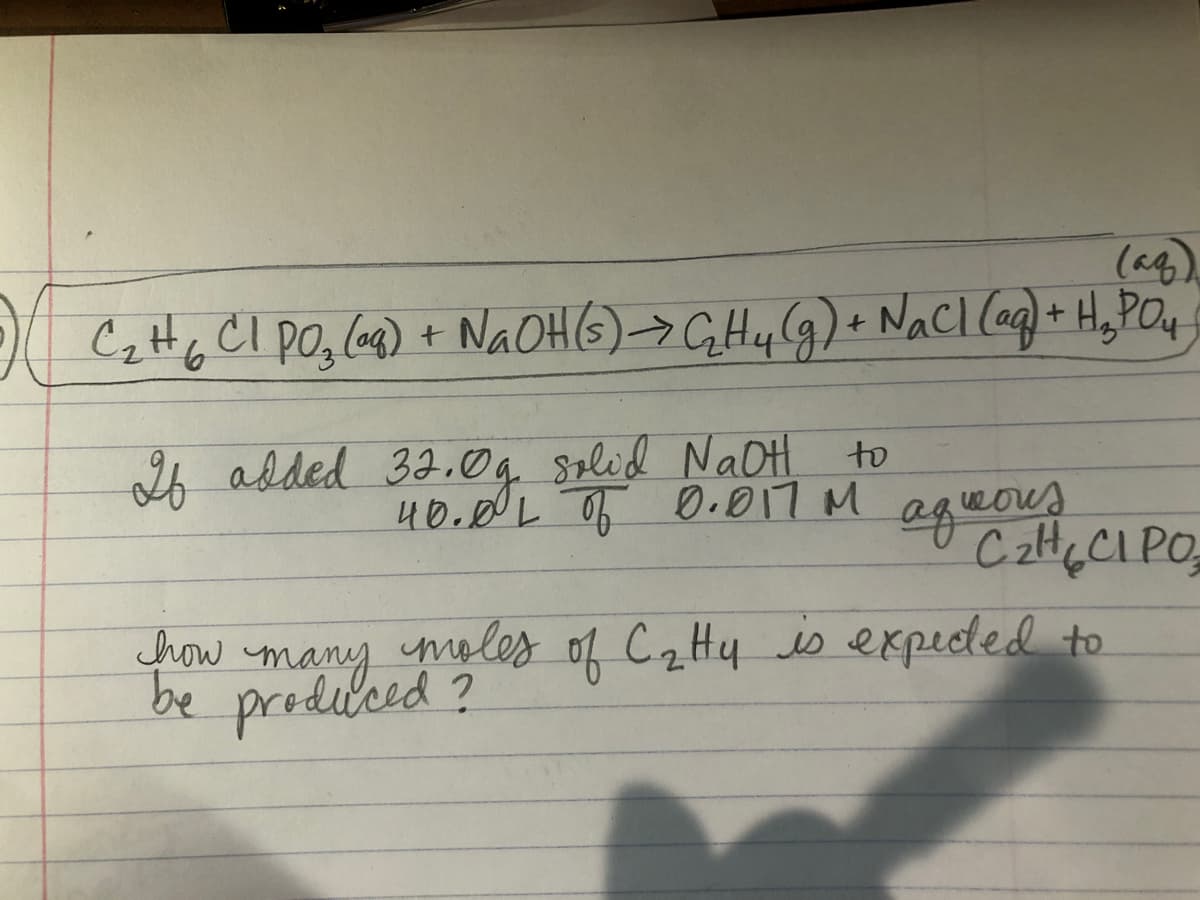 (aq)
C₂H₆ClPO₃(aq) + NaOH(s) → C₂H₄(g) + NaCl(aq) + H₃PO₄
If added 32.0g solid NaOH to
40.0L of 0.017 M aqueous
C₂H₆ClPO₃
how many moles of C₂H₄ is expected to
be produced?